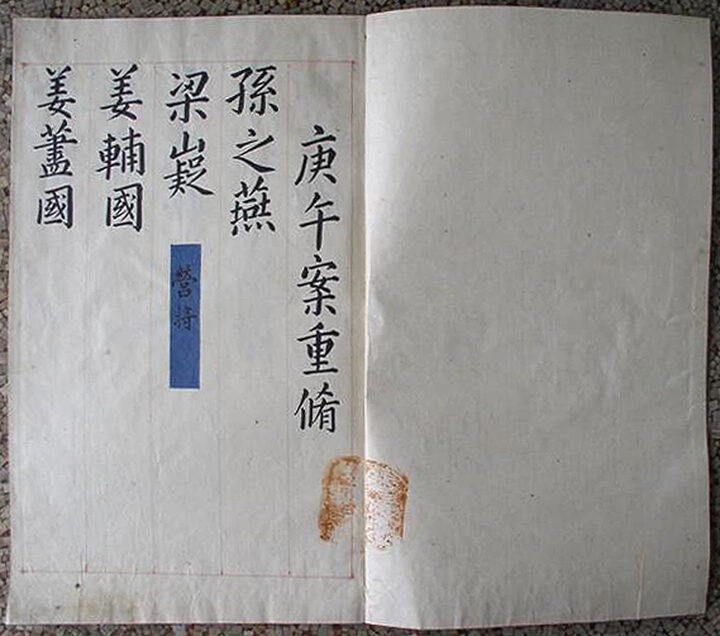 庚午案重脩
孫之燕
梁嶷
營將
姜輔國
姜藎國